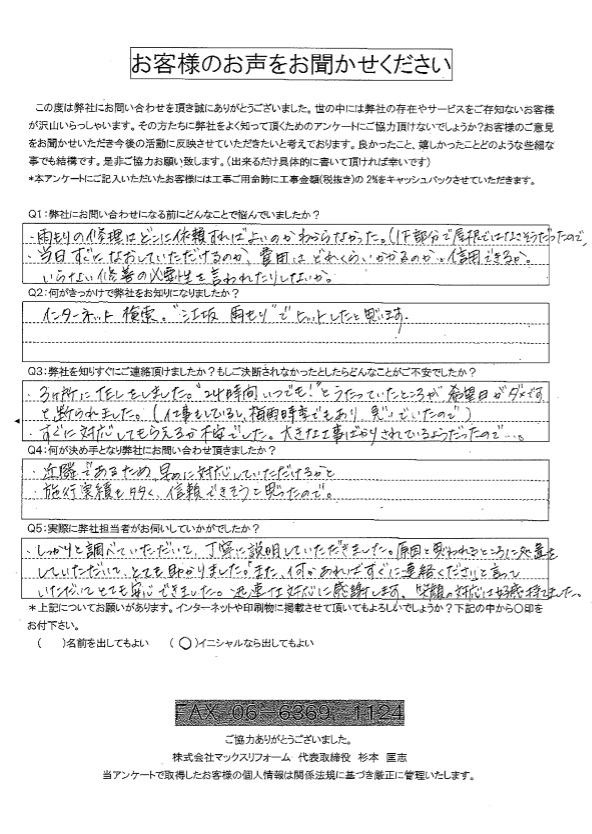 お客様のお声をお聞かせください
この度は弊社にお問い合わせを頂き誠にありがとうございました。世の中には弊社の存在やサービスをご存知ないお客様
が沢山いらっしゃいます。その方たちに弊社をよく知って頂くためのアンケートにご協力頂けないでしょうか?お客様のご意見
をお聞かせいただき今後の活動に反映させていただきたいと考えております。良かったこと、嬉しかったことどのような些細な
事でも結構です。是非ご協力お願い致します。(出来るだけ具体的に書いて頂ければ幸いです)
*本アンケートにご記入いただいたお客様には工事ご用命時に工事金額(税抜き)の2%をキャッシュバックさせていただきます。
Q1:弊社にお問い合わせになる前にどんなことで悩んでいましたか?
・雨もりの修理はどこに依頼すればよいのかわからなかった。(1F部分で屋根ではなさそうだったので、
・当日すぐになおしていただけるのか、費用はどれくらいかかるのか、信用できるか。
いらない修善の必要性を言われたりしないか。
Q2:何がきっかけで弊社をお知りになりましたか?
インターネット検索。"江坂 雨もり"でヒットしたと思います。
Q3:弊社を知りすぐにご連絡頂けましたか?もしご決断されなかったとしたらどんなことがご不安でしたか?
・3ヶ所にTELをしました。"24時間いつでも!"とうたっていたところが、希望日がダメです
と断られました。(仕事もしているし、梅雨時季でもあり、急いでいたので)
・すぐに対応してもらえるか不安でした。大きな工事ばかりされているようだったので…。
Q4:何が決め手となり弊社にお問い合わせ頂けましたか?
・近隣であるため、早めに対応していただけるかと
・施行実績も多く、信頼できそうと思ったので。
Q5:実際に弊社担当者がお伺いしていかがでしたか?
・しっかりと調べていただいて、丁寧に説明していただきました。原因と思われるところに処置を
していただいて、とても助かりました。「また、何かあればすぐに連絡ください」と言って
いただいてとても安心できました。迅速な対応に感謝します。笑顔の対応は好感持てました。
*上記についてお願いがあります。インターネットや印刷物に掲載させて頂いてもよろしいでしょうか?下記の中から〇印を
お付下さい。
( )名前を出してもよい (〇)イニシャルなら出してもよい
FAX 06-6369-1124
ご協力ありがとうございました。
株式会社マックスリフォーム 代表取締役 杉本 匡志
当アンケートで取得したお客様の個人情報は関係法規に基づき厳正に管理いたします。